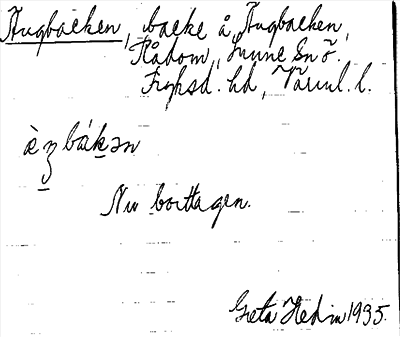 Ängbacken, backe å Ängbacken,
Rådom, Sunne Snö.
Fryksd. hd, Värml. l.
æ̀ʒbákən
Nu borttagen.
Greta Hedin 1935.